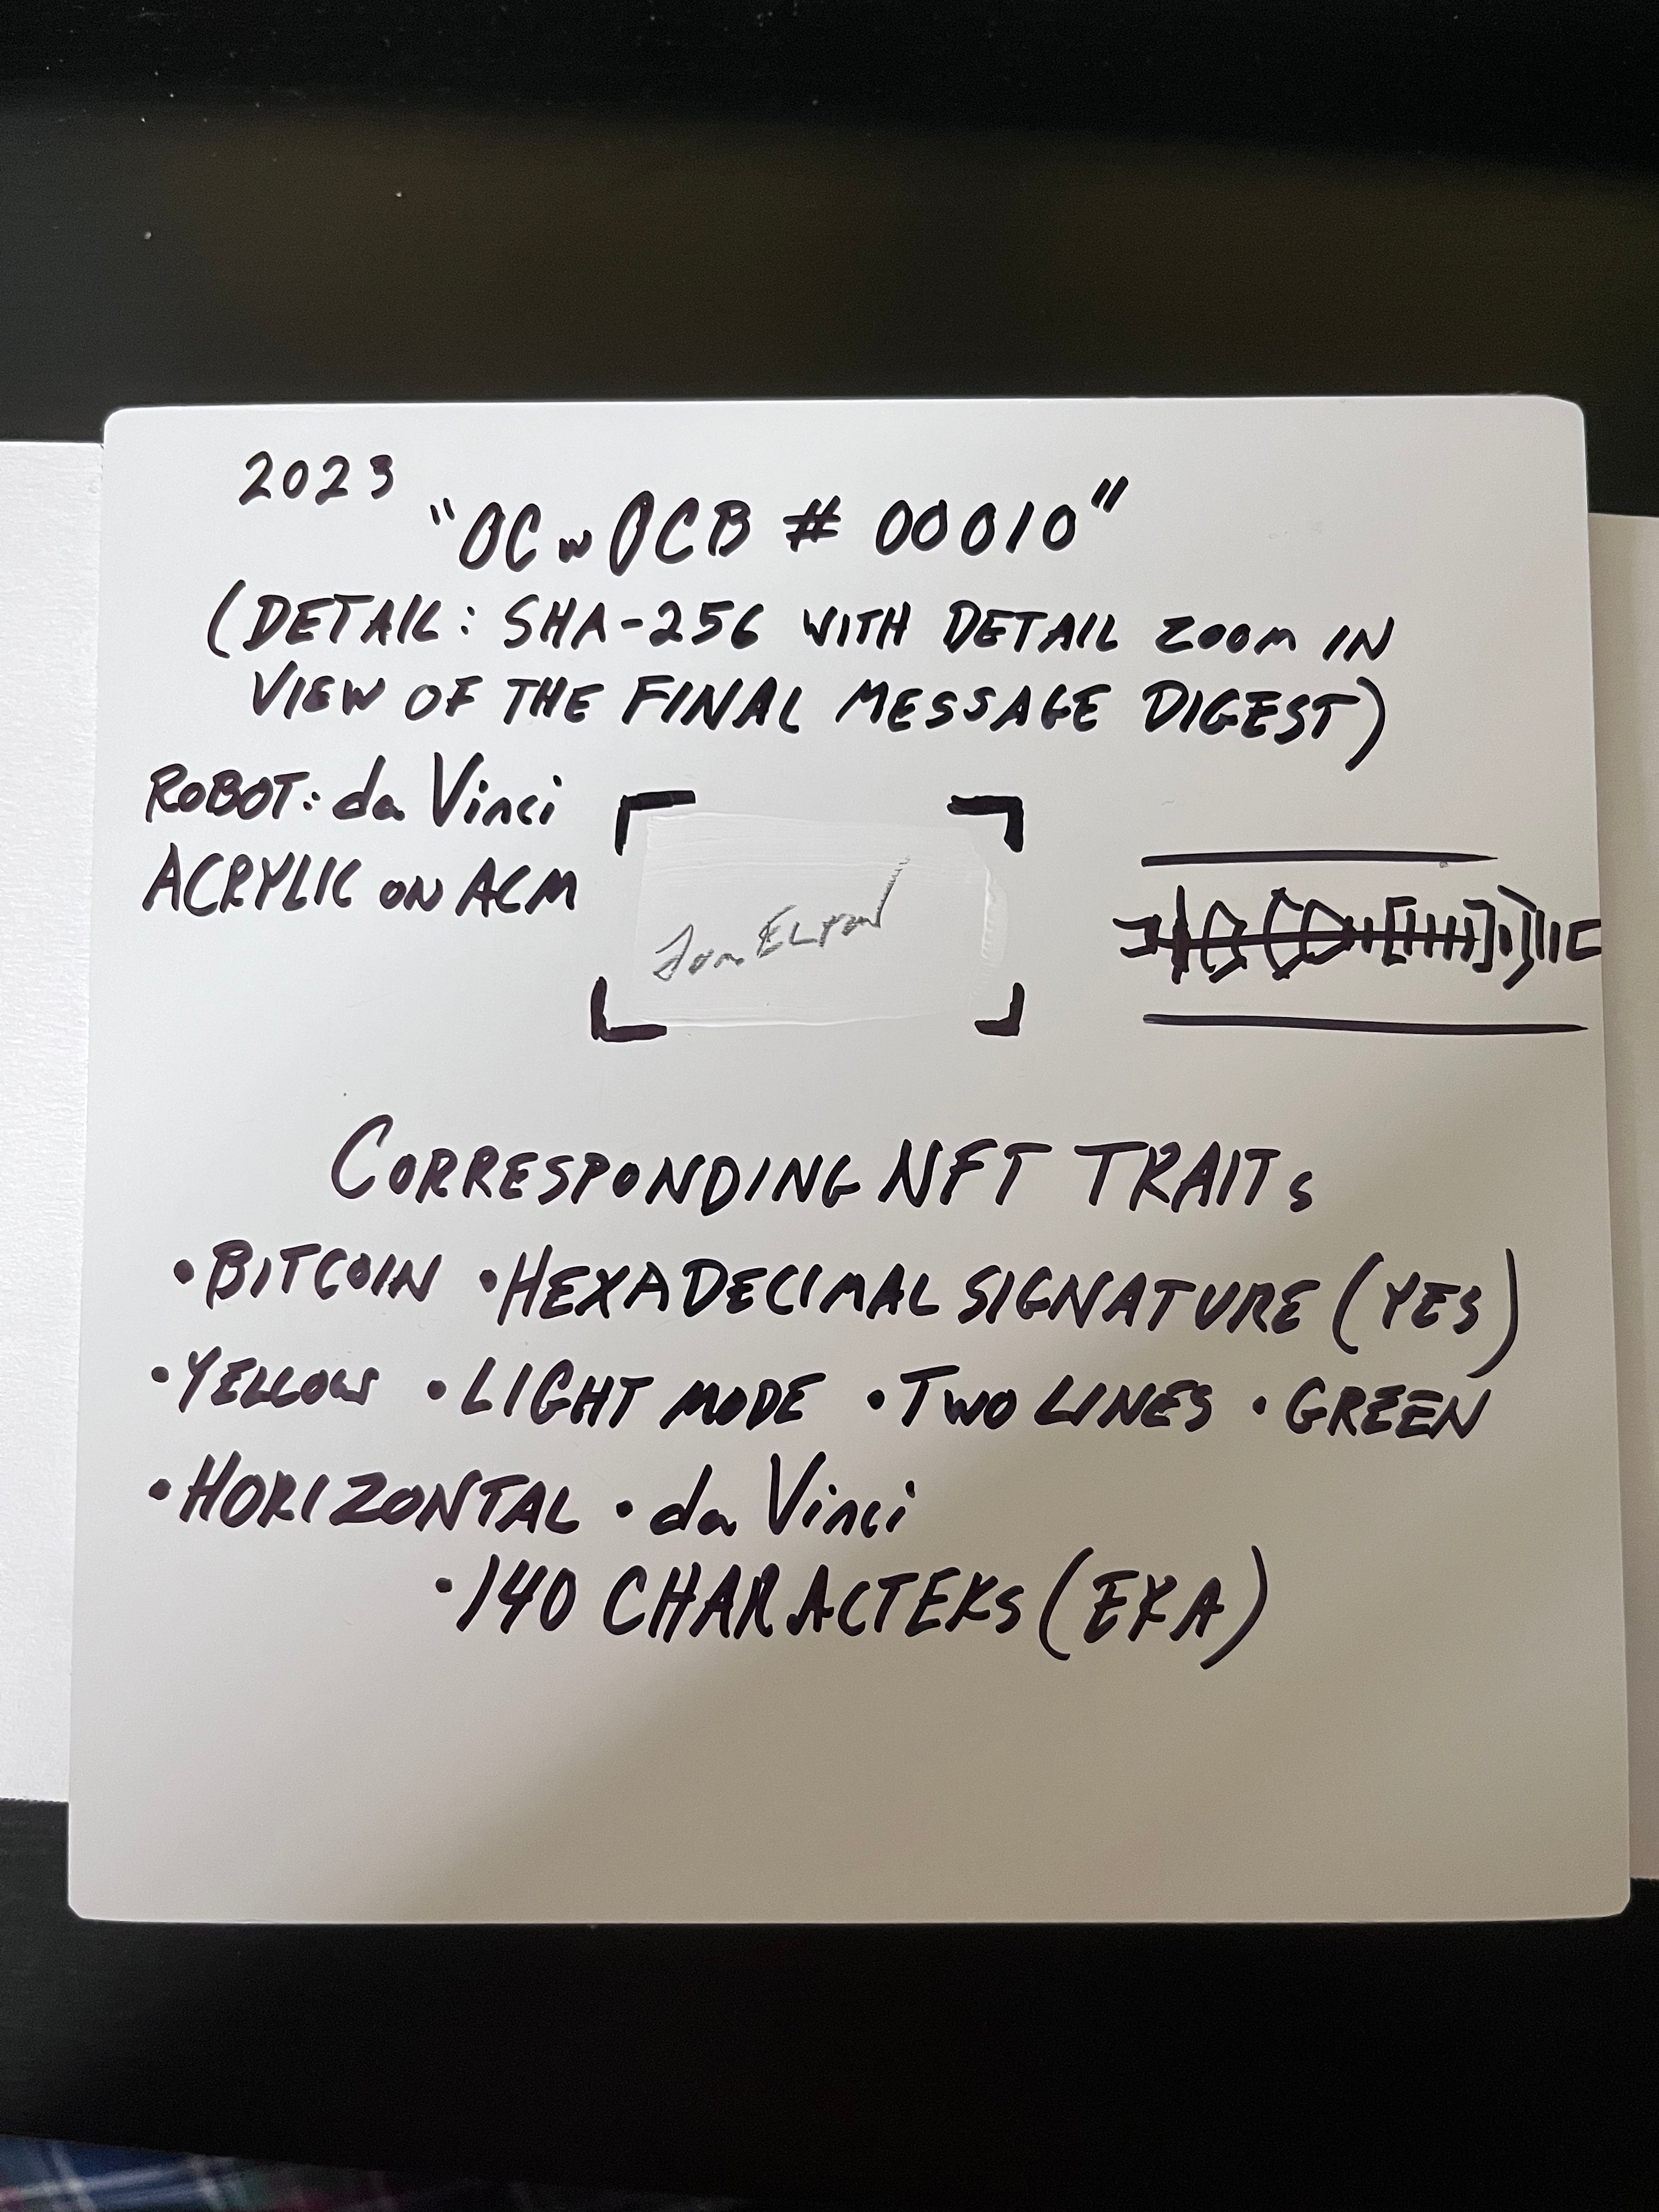 2023
"OC w OCB # 00010"
(DETAIL: SHA-256 WITH DETAIL ZOOM IN
VIEW OF THE FINAL MESSAGE DIGEST)
ROBOT: da Vinci
ACRYLIC ON ACM
CORRESPONDING NFT TRAITS
•BITCOIN •HEXADECIMAL SIGNATURE (YES)
•YELLOW •LIGHT MODE •TWO LINES •GREEN
•HORIZONTAL •da Vinci
•140 CHARACTERS (EXA)